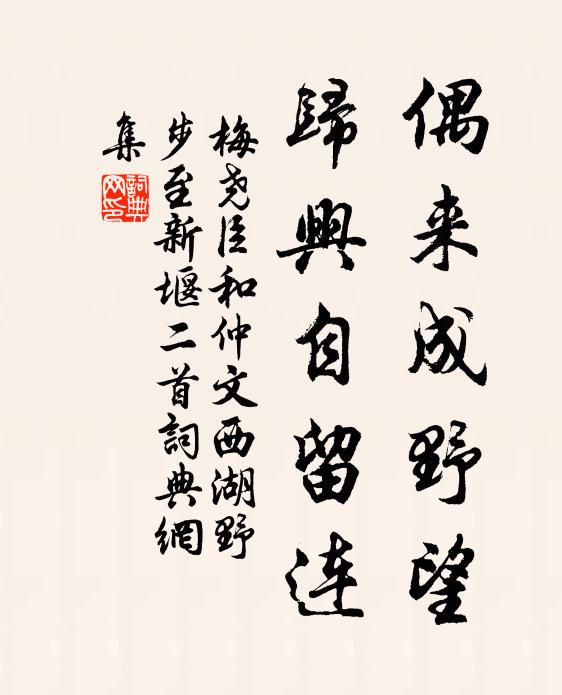 偶来成野望
歸興自留连
梅尧臣和仲文西湖野
步至新堰二首詞典網
集
詞典
网印